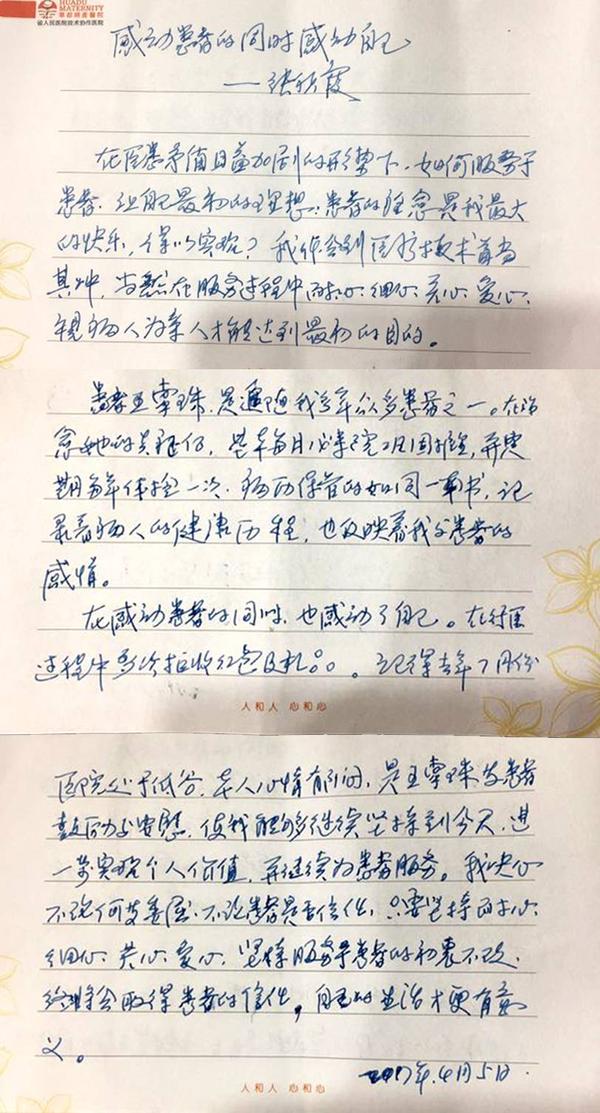 HUADU
MATERNITY
華都婦產醫院
省人民医院技术协作医院
感动患者的同时感动自己
——张欣霞
在医患矛盾日益加剧的形势下，如何服务于
患者，让自己最初的理想：患者的信念是我最大
的快乐，得以实现？我体会到医疗技术首当
其冲，当然在服务过程中耐心、细心、关心、爱心，
视病人为亲人才能达到最初的目的。
患者王 珠，是追随我多年众多患者之一。在
她的 ，每年每月必来院
期每年体检一次，病历保管的如同一本书，记
录着病人的健康历程，也反映着我与患者的
感情。
在感动患者的同时，也感动了自己。在行医
过程中多次拒收红包及礼品。记得去年7月份
人和人 心和心
医院处于低谷，本人心情郁闷，是王 珠等患者
鼓励与安慰，使我能够继续坚持到今天，进
一步实现个人价值，再继续为患者服务。我决心
不论何受委屈，不论患者是否信任，只要坚持耐心、
细心、关心、爱心，坚持服务于患者的初衷不改，
终将会取得患者的信任，自己的生活才更有意
义。
2017年.4月5日.
人和人 心和心